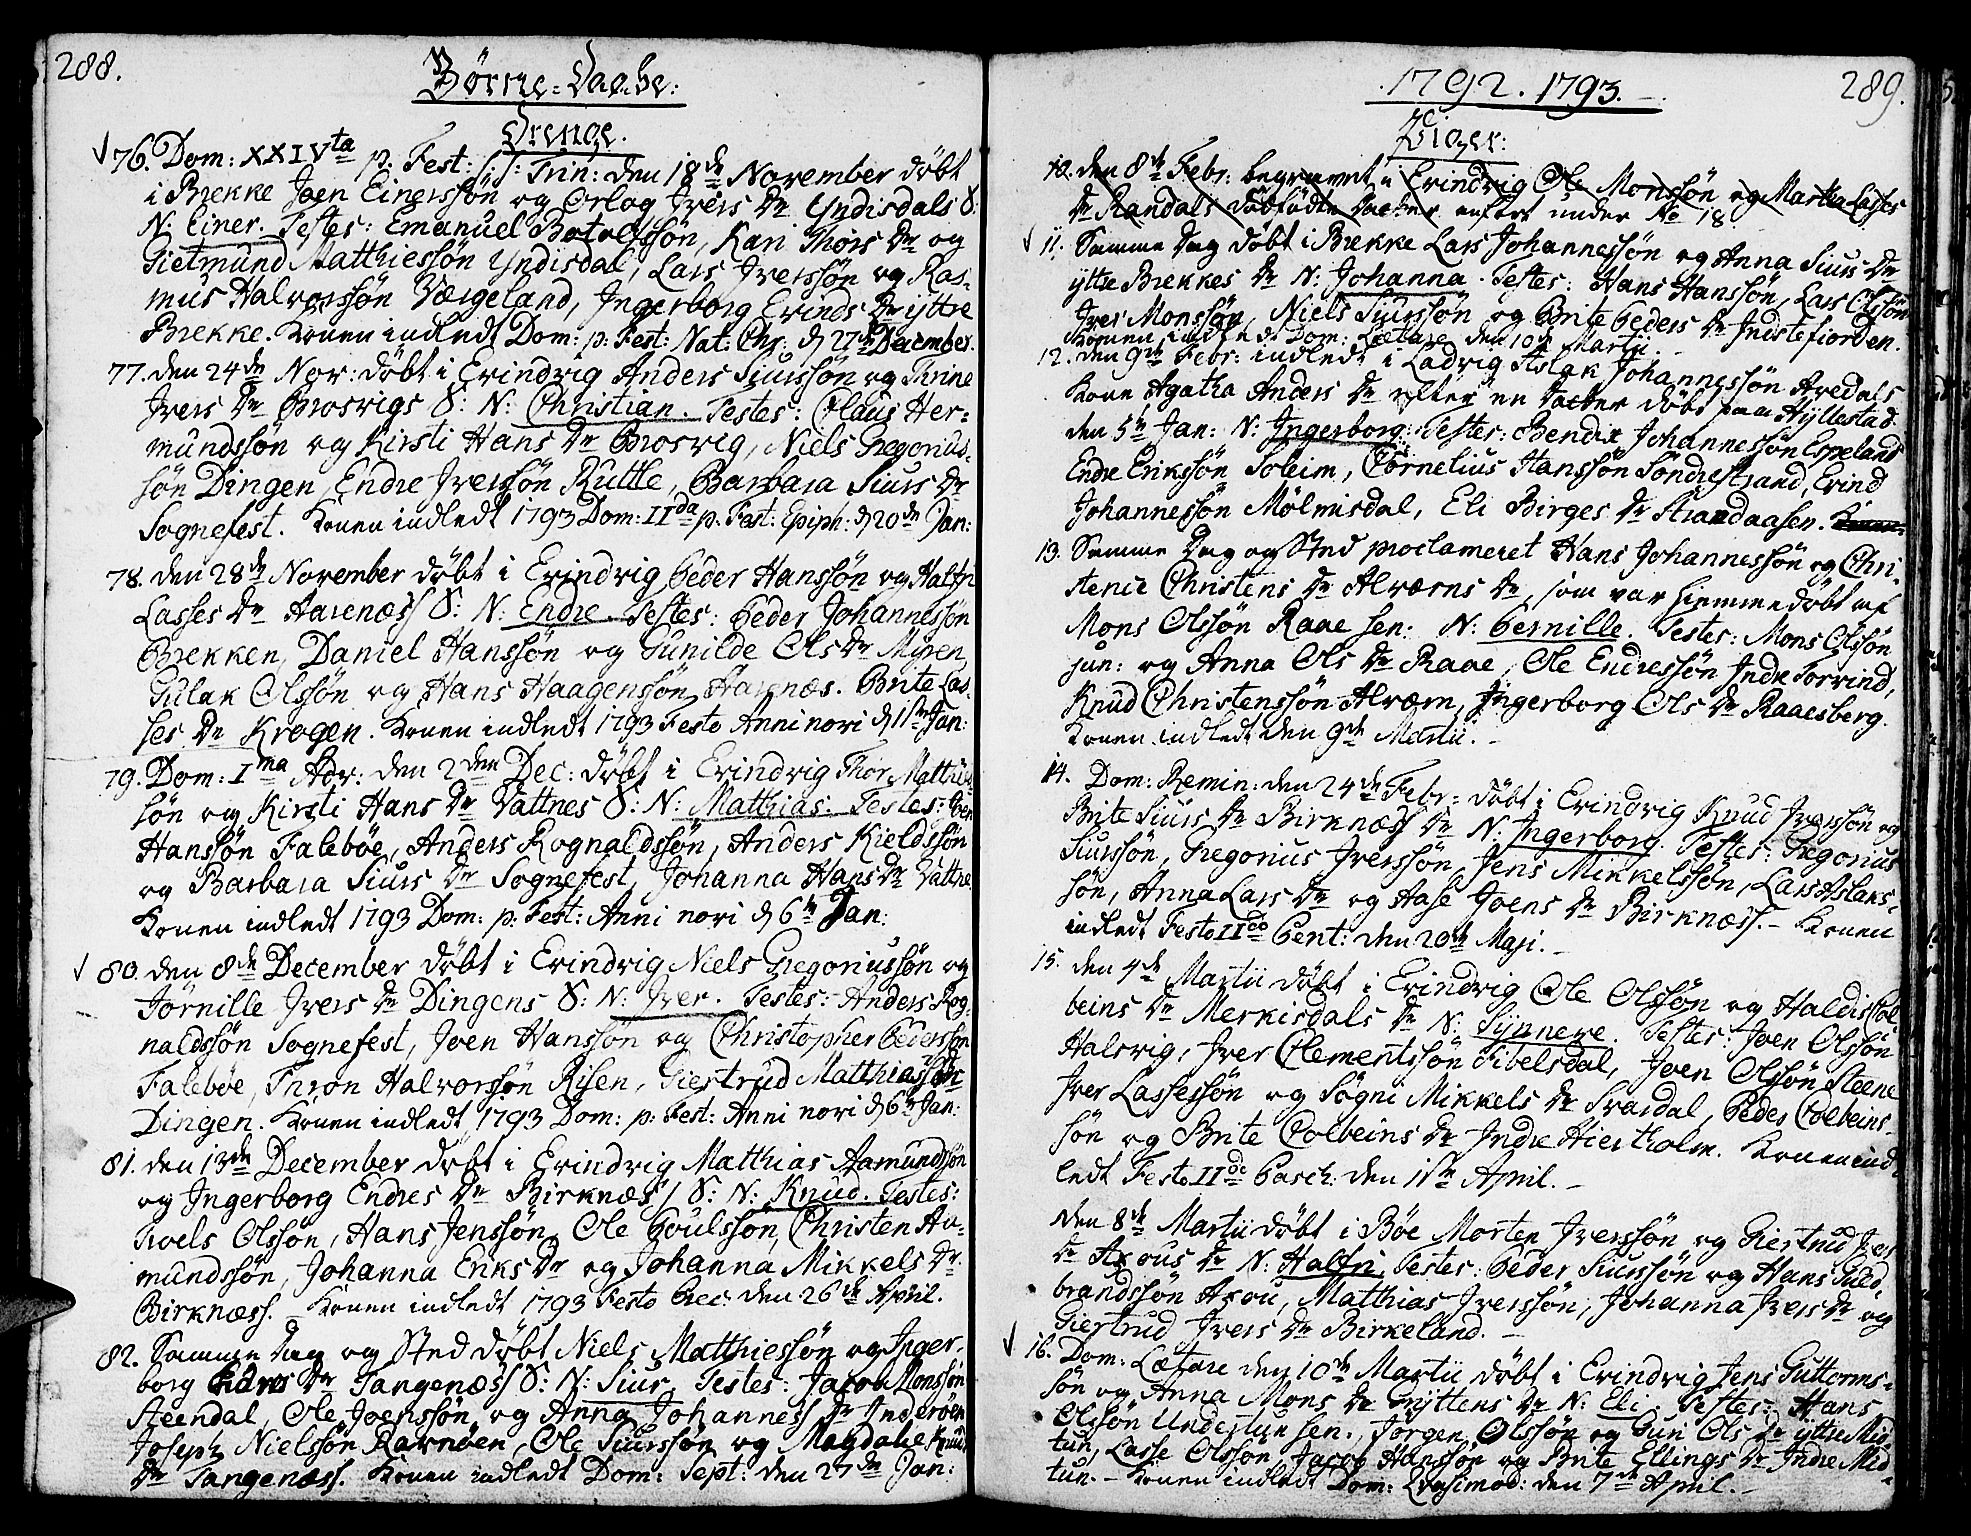 288.
Börne-Daabe:
Drenge.
76. Dom: XXIVta p. Fest: S.S. Trin: den 18de November döbt
i Brekke Joen Einerssön og Orlog Ivers Dr Yndisdals S:
N: Einer. Testes: Emanuel Botolfssön, Kari Thors Dr og
Gietmund Matthiessön Yndisdal, Lars Iverssön og Ras-
mus Halvorssön Værgeland, Ingerborg Erinds Dr ÿttre
Brekke. Konen indledt Dom: p: Fest: Nat: Chr: d 27de December.
77. den 24de Nov: döbt i Evindvig Anders Siurssön og Thrine
Ivers Dr Brosvigs S: N: Christian. Testes: Claus Her-
mundssön og Kirsti Hans Dr Brosvig, Niels Gregorius-
sön Dingen, Endre Iverssön Ruttle, Barbara Siurs Dr
Sognefest. Konen indledt 1793 Dom: IIda p. Fest: Epiph: d 20de Jan:
78. den 28de November döbt i Evindvig Peder Hanssön og Haltri
Lasses Dr Aarenæss S: N: Endre. Testes: Peder Johannessön
Brekken, Daniel Hanssön og Gunilde Ols Dr Myren,
Gulak Olssön og Hans Haagenssön Aarenæs. Brite Las-
ses Dr Krogen. Konen indledt 1793 Festo Anni novi d 1ste Jan:
79. Dom: Ima Adv: den 2den Dec: döbt i Evindvig Thor Matthis-
sön og Kirsti Hans Dr Vattnes S: N: Matthias. Testes: Peder
Hanssön Faleböe, Anders Rognaldssön, Anders Kieldssön
og Barbara Siurs Dr Sognefest, Johanna Hans Dr Vattne.
Konen indledt 1793 Dom: p. Fest: Anni novi d 6te Jan:
80. den 8de December döbt i Evindvig Niels Gregoriussön og
Jörnille Ivers Dr Dingens S: N: Iver. Testes: Anders Rog-
naldssön Sognefest, Joen Hanssön og Christopher Pederssön
Faleböe, Trion Halvorssön Risen, Giertrud Matthias Dr
Dingen. Konen indledt 1793 Dom: p: Fest: Anni novi d 6te Jan:
81. den 13de December döbt i Evindvig Matthias Aamundssön
og Ingerborg Endres Dr Birknæss S: N: Knud. Testes:
Niels Olssön, Hans Jenssön, Ole Poulssön, Christen Aa-
mundssön, Johanna Eriks Dr og Johanna Mikkels Dr
Birknæss. – Konen indledt 1793 Festo Prec: den 26de April.
82. Samme Dag og Sted döbt Niels Matthiessön og Inger-
borg Dr Tangenæss S: N: Siur. Testes: Jacob Monssön
Steendal, Ole Joenssön og Anna Johanness Dr Inderöen
Joseph Nielssön Ravnöen, Ole Siurssön og Magdale Knuds
Dr Tangenæss. Konen indledt Dom: Sept: den 27de Jan:
1792. 1793.
289.
Piger:
10. den 8de Febr: begravet i Evindvig Ole Monssön og Martha Lasses
Dr Randals dödfödte Datter anfört under No 18.
11. Samme Dag döbt i Brekke Lars Johannessön og Anna Siurs Dr
ÿttre Brekkes Dr N: Johanna. Testes: Hans Hanssön, Lars Olssön
Iver Monssön, Niels Siurssön og Brite Peders Dr Indstefiorden.
Konen indledt Dom: Lætare den 10de Martii. –
12. den 9de Febr: indledt i Ladvig Aslak Johannessön Avedals
Kone Agatha Anders Dr efter en Datter döbt paa Hÿllestad
den 5te Jan: N: Ingerborg: Testes: Bendix Johannessön Espeland
Endre Erikssön Soleim, Cornelius Hanssön Söndrestrand, Erind
Johannessön Mölmisdal, Eli Birges Dr Strandaasen. Konen
13. Samme Dag og Sted proclameret Hans Johannessön og Chri-
stence Christens Dr Alværns Dr, som var hiemmedöbt af
Mons Olssön Raae sen: N: Pernille. Testes: Mons Olssön
jun: og Anna Ols Dr Raae, Ole Endressön Indre Torvind,
Knud Christenssön Alværn, Ingerborg Ols Dr Raaesberg.
Konen indledt den 9de Martii. –
14. Dom: Remin: den 24de Febr: döbt i Evindvig Knud Iverssön og
Brite Siurs Dr Birknæss Dr N: Ingerborg. Testes: Gregorius
Siurssön, Gregorius Iverssön, Jens Mikkelssön, Lars Aslaks-
sön, Anna Lars Dr og Aase Joens Dr Birknæss. – Konen
indledt Festo IIdo Pent: den 20de Maji. –
15. den 4de Martii döbt i Evindvig Ole Olssön og Haldis Col-
beins Dr Merkisdals Dr N: Sÿnneve. Testes: Joen Olssön
Halsvig, Iver Clementssön Fibelsdal, Joen Olssön Steene
Iver Lassessön og Sögni Mikkels Dr Svardal, Peder Colbeins-
sön og Brite Colbeins Dr Indre Hiertholm. Konen ind-
ledt Festo IIdo Pasch: den 1ste April. –
den 8de Martii döbt i Böe Morten Iverssön og Giertrud Ivers
Dr Axous Dr N: Haltri. Testes: Peder Siurssön og Hans Guld-
brandssön Axou, Matthias Iverssön, Johanna Ivers Dr og
Giertrud Ivers Dr Birkeland. –
16. Dom: Lætare den 10de Martii döbt i Evindvig Jens Guttorms-
sön og Anna Mons Dr Grÿttens Dr N: Eli. Testes: Hans
Olssön Undertun sen., Jörgen Olssön og Guri Ols Dr ÿttre Mid-
tun, Lasse Olssön, Jacob Hanssön og Brite Ellings Dr Indre Mid-
tun. – Konen indledt Dom: Qvasimod: den 7de April. –